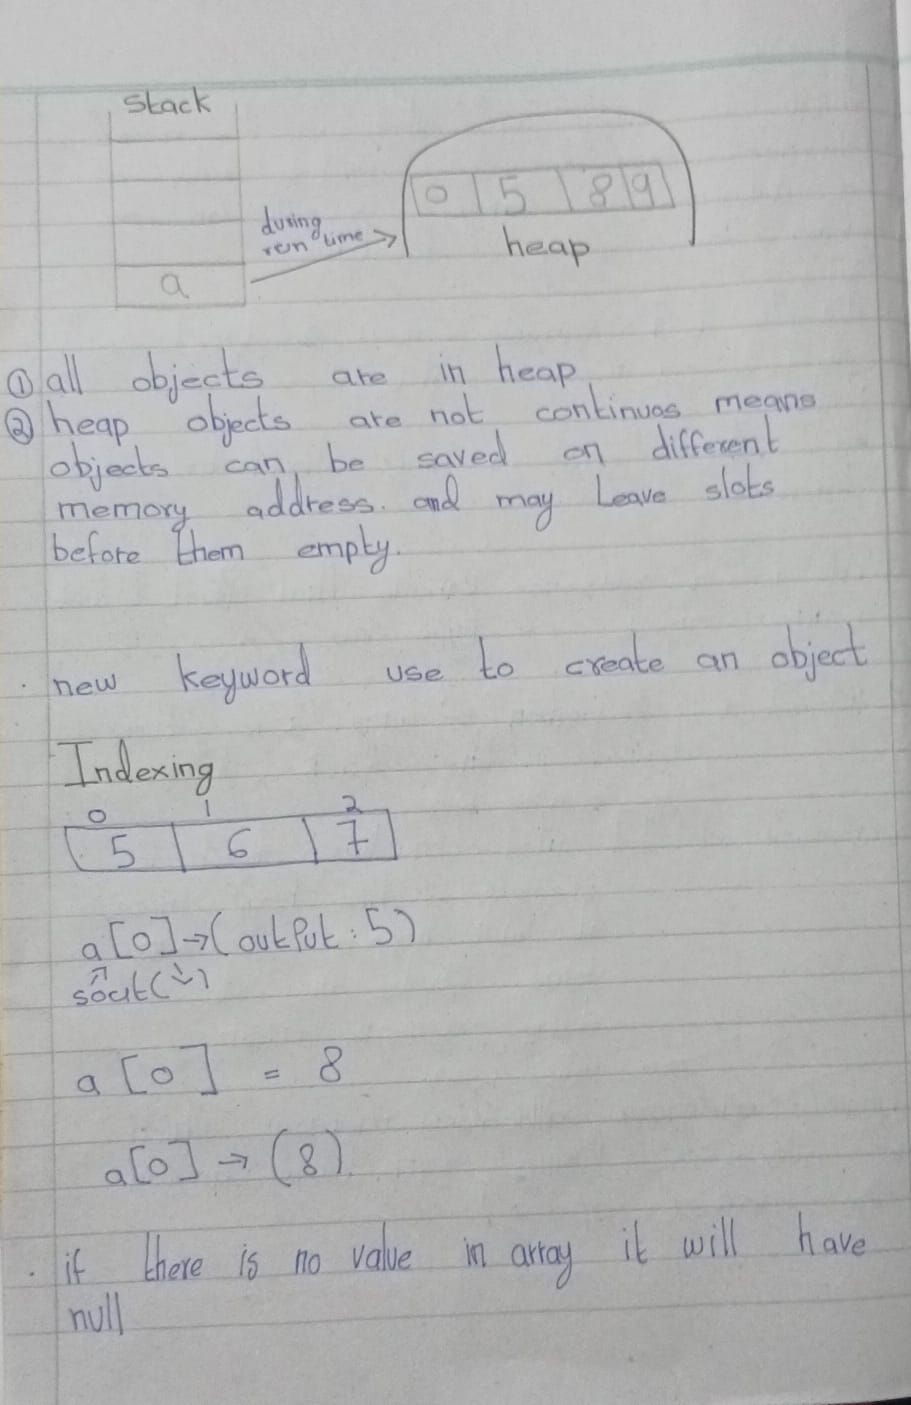 Stack
0 5 8 9
during
run time
heap
a
① all objects are in heap
② heap objects are not continuos means
objects can be saved on different
memory address. and may Leave slots
before them empty.
. new keyword use to create an object
Indexing
0 1 2
5 6 7
a[0]→(output: 5)
sout(↓)
a[0] = 8
a[0] → (8)
. if there is no value in array it will have
null